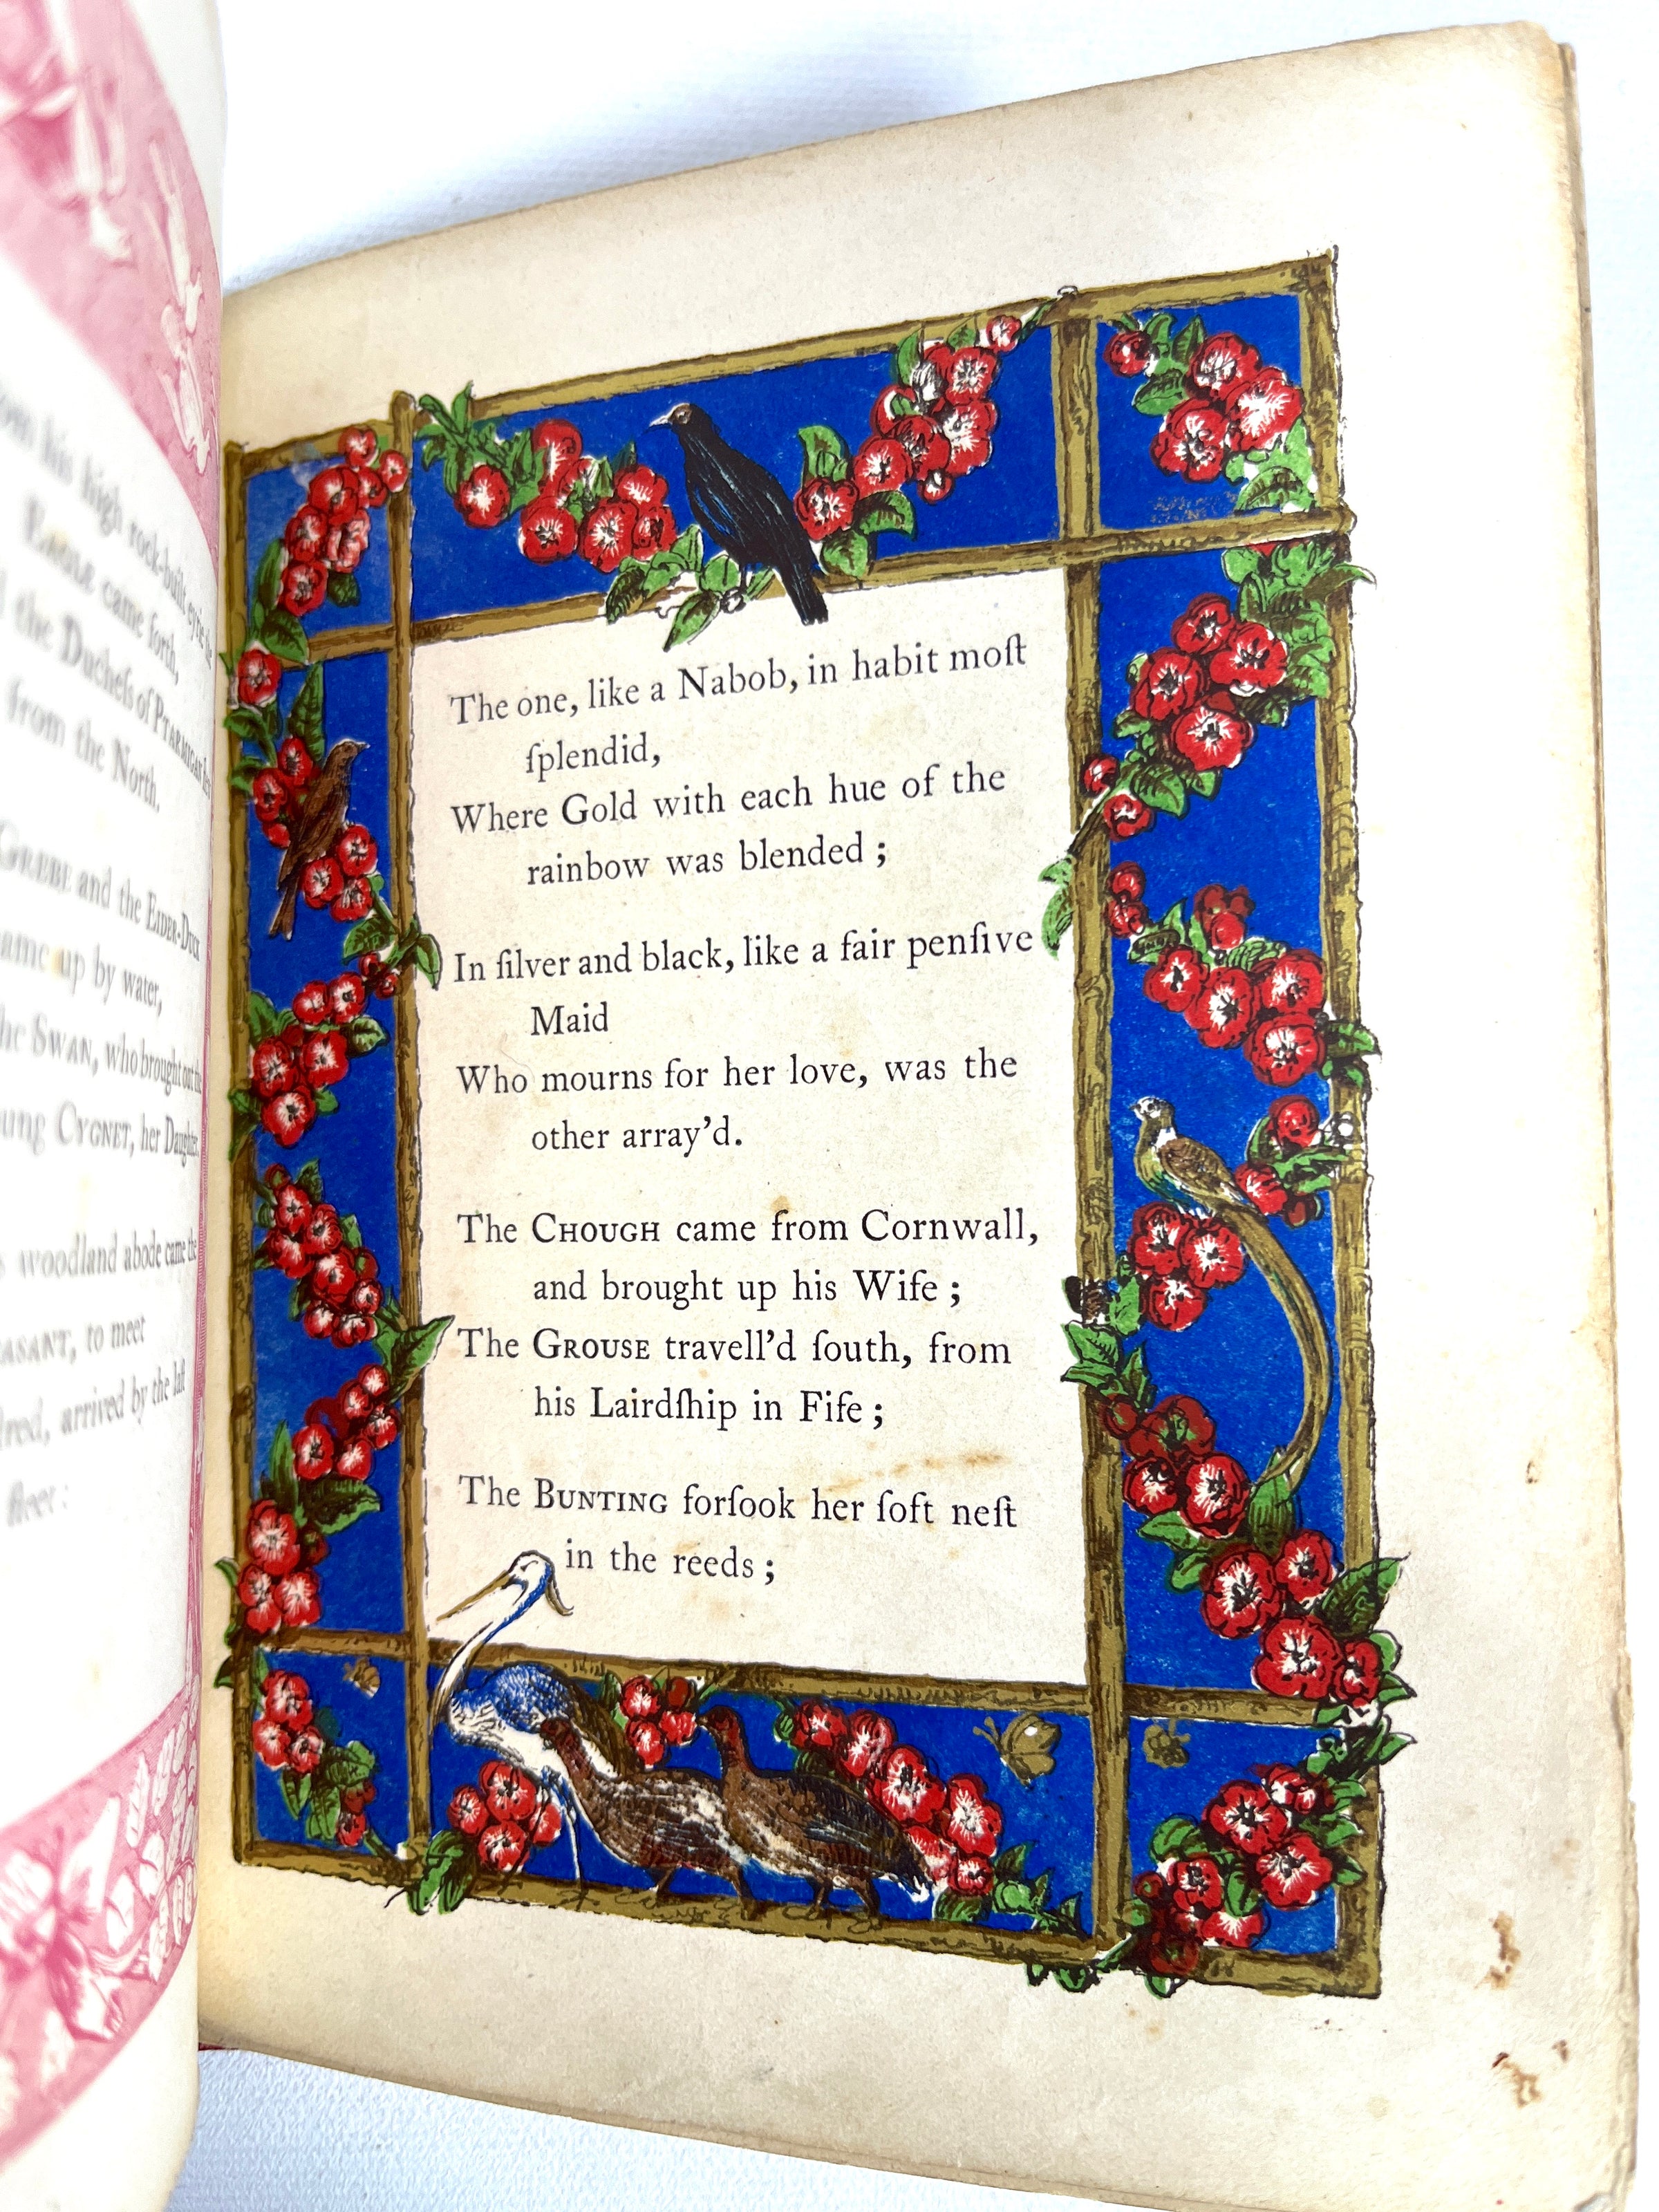 his high rock-built eyrie the
EAGLE came forth,
the Ducheſs of PTARMIGAN
from the North.
GREBE and the EIDER-DUCK
came up by water,
SWAN, who brought out the
CYGNET, her Daughter.
woodland abode came the
to meet
arrived by the laſt
fleet:
The one, like a Nabob, in habit moſt
ſplendid,
Where Gold with each hue of the
rainbow was blended;
In ſilver and black, like a fair penſive
Maid
Who mourns for her love, was the
other array’d.
The CHOUGH came from Cornwall,
and brought up his Wife;
The GROUSE travell’d ſouth, from
his Lairdſhip in Fife;
The BUNTING forſook her ſoft neſt
in the reeds;